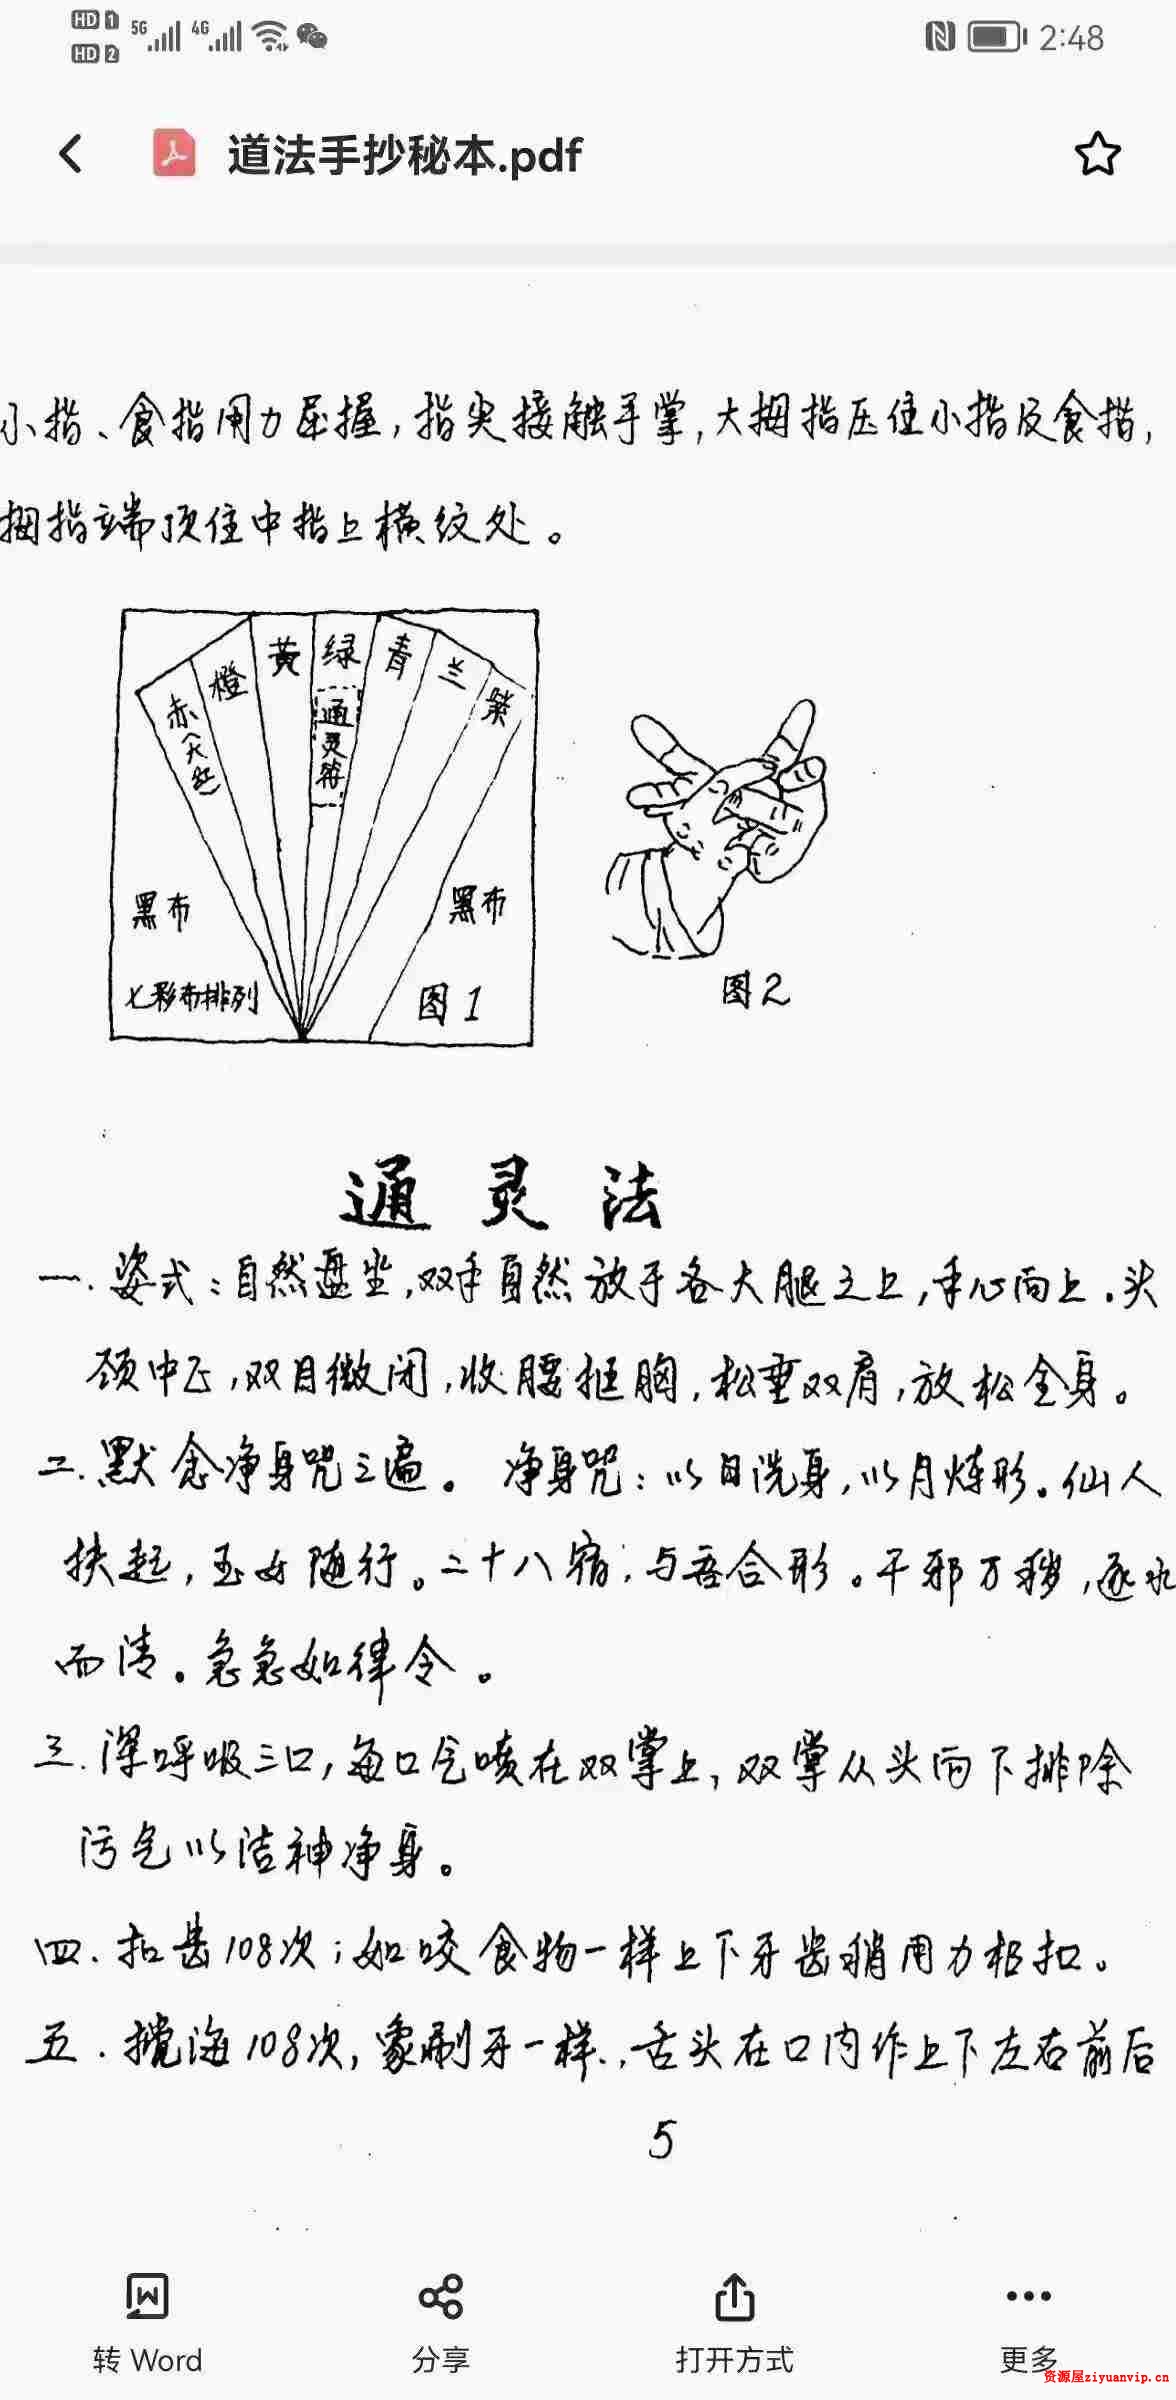 HD 1 5G 4G 2:48
HD 2
道法手抄秘本.pdf
小指、食指用力屈握,指尖接触手掌,大拇指压住小指及食指,
拇指端顶住中指上横纹处。
赤(大红) 橙 黄 绿 青 兰 紫
通灵符
黑布 黑布
七彩布排列 图1
图2
通灵法
一.姿式:自然盘坐,双手自然放于各大腿之上,手心向上.头
颈中正,双目微闭,收腰挺胸,松垂双肩,放松全身。
二.默念净身咒三遍。 净身咒:以日洗身,以月炼形。仙人
扶起,玉女随行。二十八宿,与吾合形。千邪万秽,逐水
而清。急急如律令。
三.深呼吸三口,每口气喷在双掌上,双掌从头向下排除
污气以洁神净身。
四.扣齿108次;如咬食物一样上下牙齿稍用力相扣。
五.搅海108次,象刷牙一样.,舌头在口内作上下左右前后
5
转 Word 分享 打开方式 更多
资源屋ziyuanvip.cn